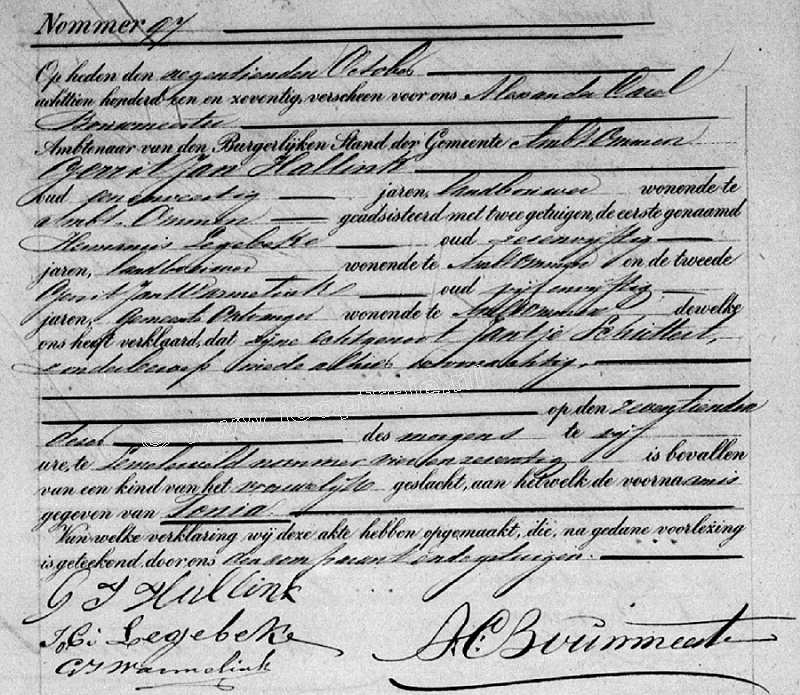 Nommer 97
Op heden den negentienden October
achttien honderd een en zeventig, verscheen voor ons Alexander Carel
Bouwmeester
Ambtenaar van den Burgerlijken Stand der Gemeente Ambt Ommen
Gerrit Jan Hullink
oud een en veertig jaren, landbouwer wonende te
Ambt-Ommen geadsisteerd met twee getuigen, de eerste genaamd
Hermannus Legebeke oud zeven vijftig
jaren, landbouwer wonende te Ambt Ommen en de tweede
Gerrit Jan Warmelink oud vijf en vijftig
jaren, Gemeente Ontvanger wonende te Ambt Ommen dewelke
ons heeft verklaard, dat zijne echtgenoot Jantje Schuttert,
zonder beroep mede alhier woonachtig,
op den zeventienden
dezer des morgens te vijf
ure, te Lemelerveld nummer vier en zeventig is bevallen
van een kind van het vrouwelijk geslacht, aan hetwelk de voornaam is
gegeven van
Van welke verklaring wij deze akte hebben opgemaakt, die, na gedane voorlezing
is geteekend, door ons den comparant en de getuigen.
G J Hullink
Legebeke
GJ Warmelink
A.C. Bouwmeester